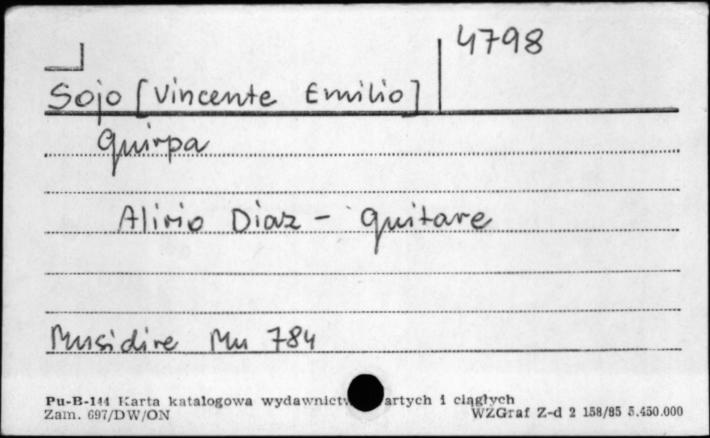 4798
Sojo [Vincente Emilio]
Quirpa
Alirio Diaz - guitare
Musidire Mu 784
Pu-B-144 Karta katalogowa wydawnictw artych i ciągłych
Zam. 697/DW/ON WZGraf Z-d 2 158/85 5.450.000